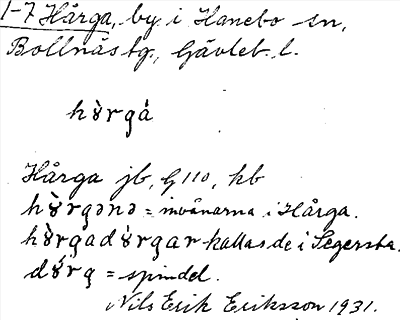 1-7 Hårga, by i Hanebo sn,
Bollnäs tg., Gävleb. l.
hɤ̀rgá
Hårga jb, G110, kb
hɤ̀rgənə = invånarna i Hårga.
hɤ̀rgadɤ́rgar kallas de i Segersta.
dɤ́rg = spindel.
Nils Erik Eriksson 1931.